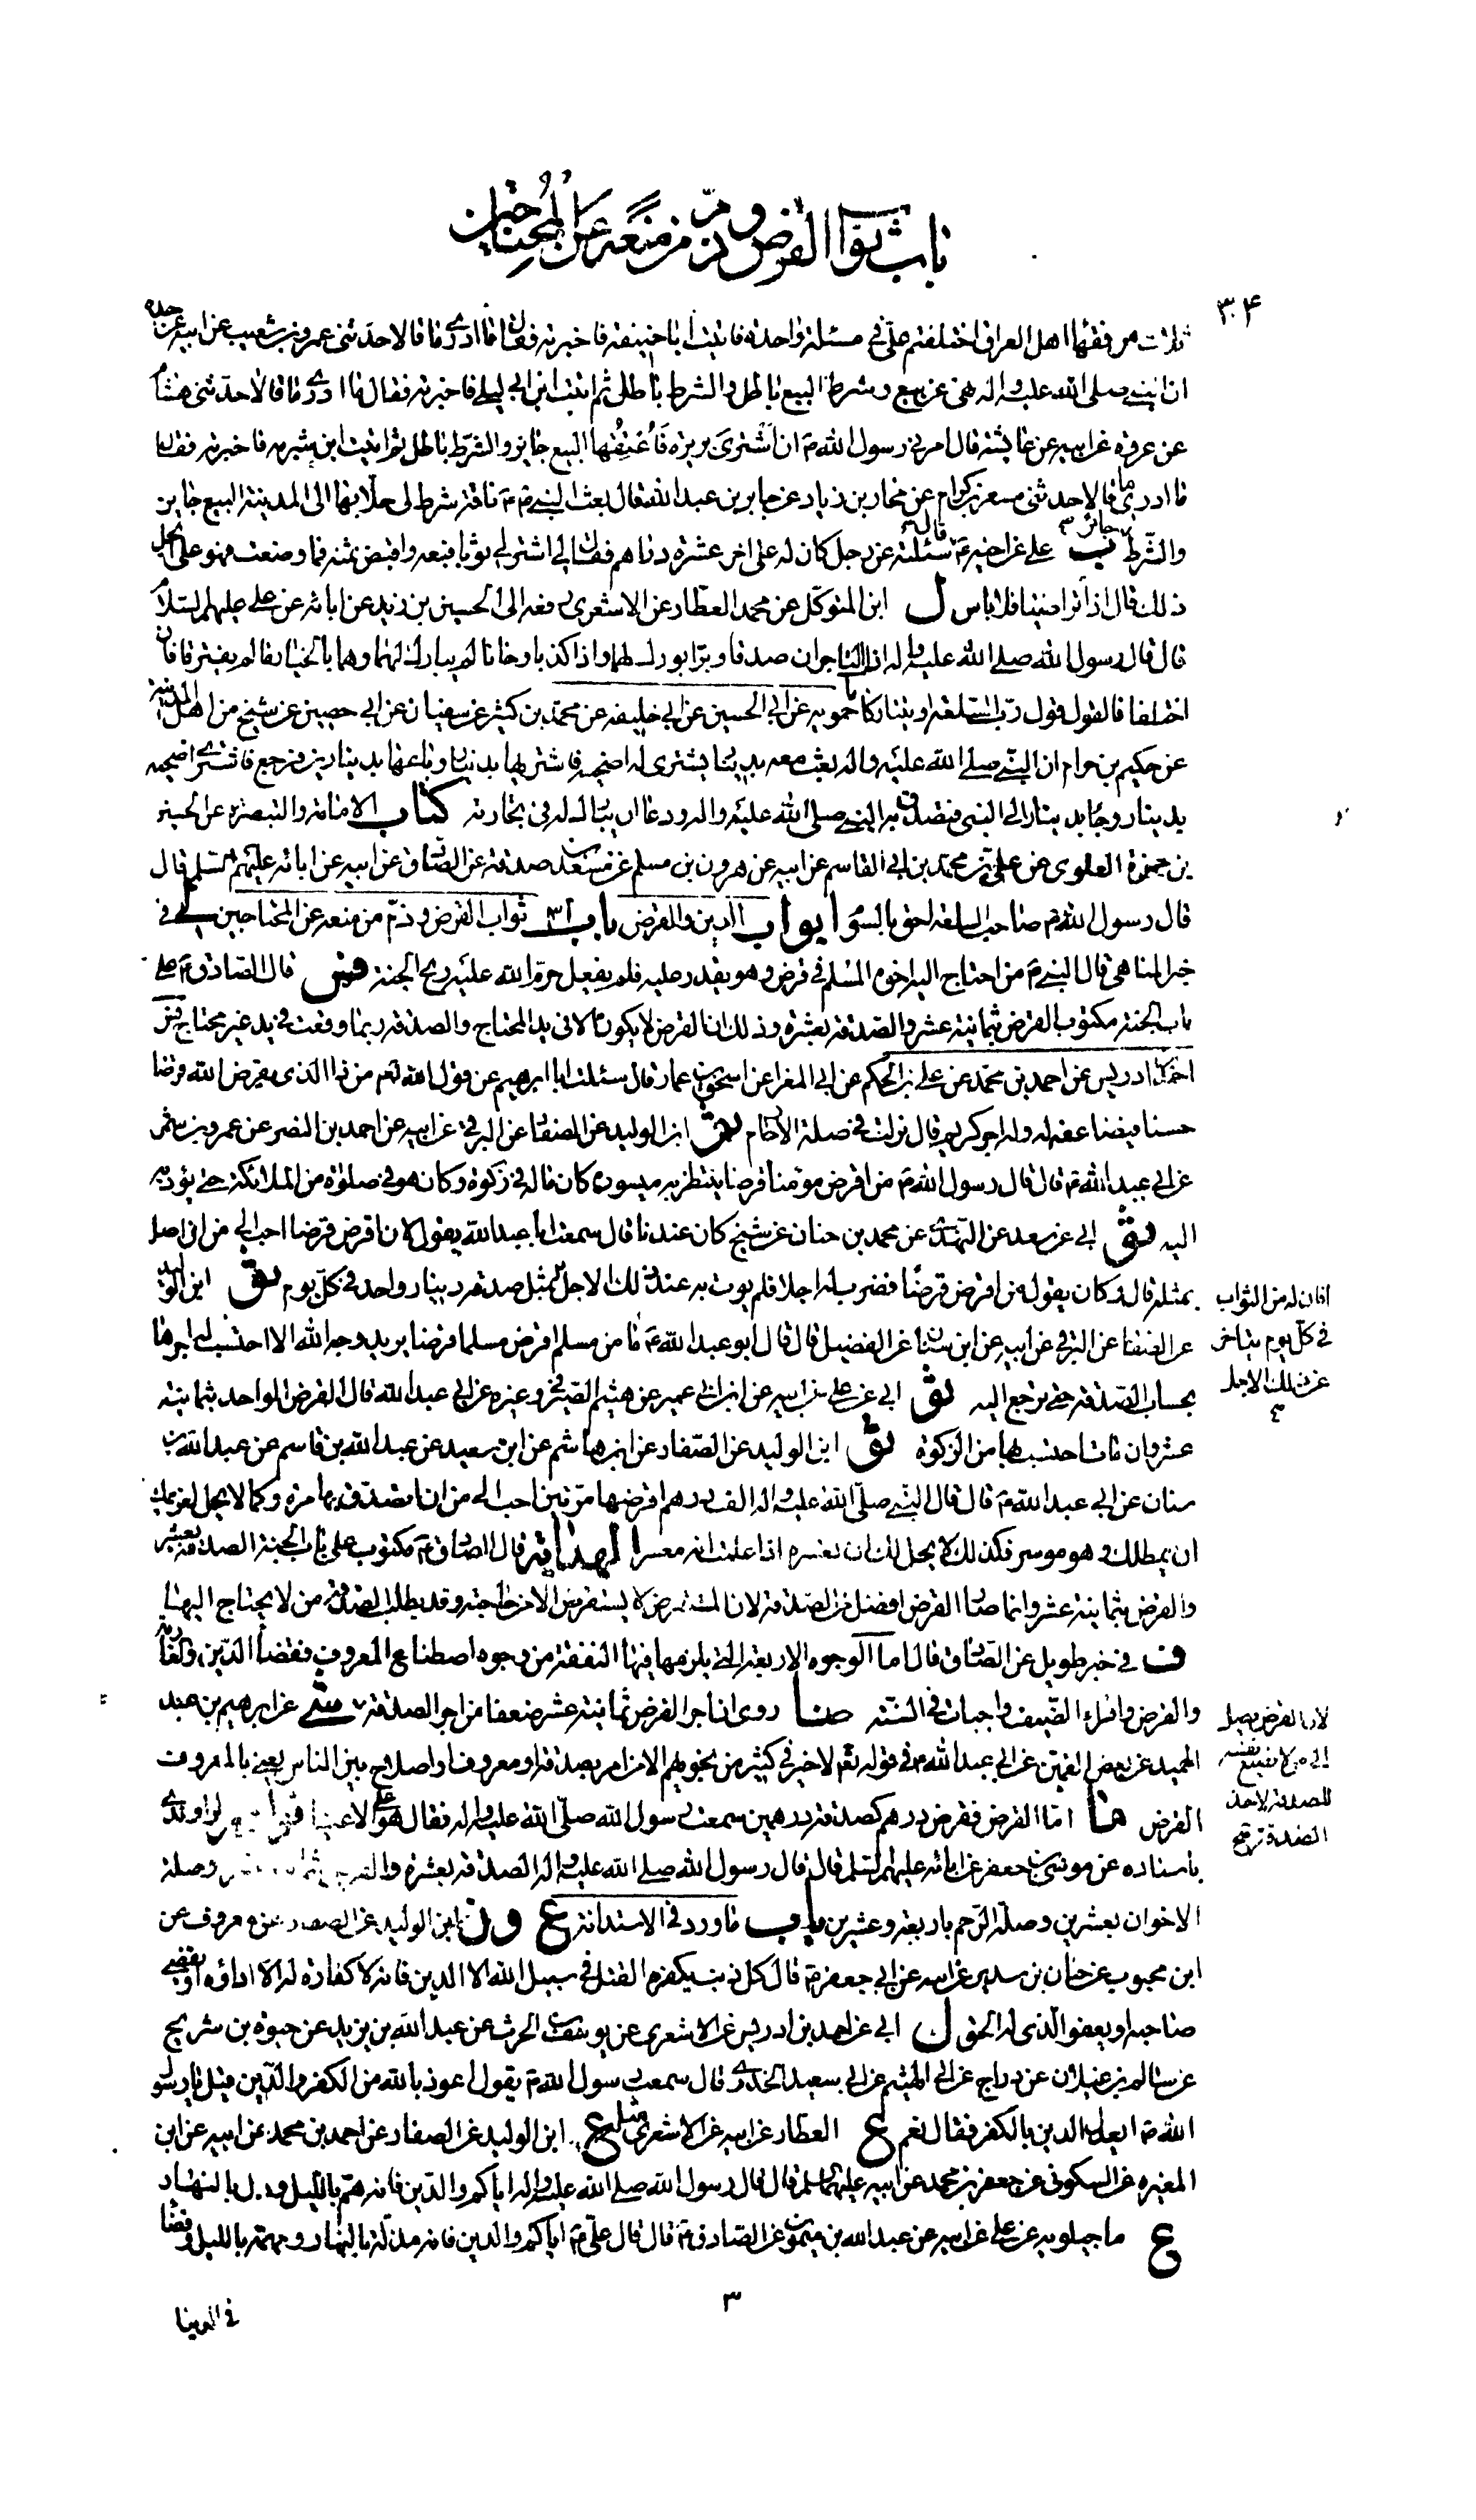 باب ثواب القرض و ذم من منعه عن المحتاجين
٣٠۴
ثلاث من فقهاء اهل العراق اختلفتم علىّ فى مسئلة واحدة فاتيت ابا حنيفة فاخبرته فقال ما ادرى ما قالا حدثنى عمرو بن شعيب عن ابيه عن جده
ان النبى صلى الله عليه و اله نهى عن بيع و شرط البيع باطل و الشرط باطل ثم اتيت ابن ابى ليلى فاخبرته فقال ما ادرى ما قالا حدثنى هشام
عن عروة عن ابيه عن عائشة قال امرنى رسول الله ص ان اشترى بريرة فاعتقها البيع جايز و الشرط باطل ثم اتيت ابن شبرمه فاخبرته فقال
ما ادرى ما قالا حدثنى مسعر بن كدام عن محارب بن زياد عن جابر بن عبد الله قال بعت النبى ص ناقة شرط لى حلابها الى المدينة البيع جايز
و الشرط جائز ب على عن اخيه ع قال سئلته عن رجل كان له على اخر عشرة دراهم فقال له اشتر لى ثوبا فبعه و اقبض ثمنه فما وضعت فهو على ايحل
ذلك قال اذا تراضينا فلا باس ل ابن المتوكل عن محمد العطار عن الاشعرى رفعه الى الحسين بن زيد عن ابائه عن على عليهم السلام
قال قال رسول الله صلى الله عليه و اله اذا التاجران صدقا و برا بورك لهما و اذا كذبا و خانا لم يبارك لهما و هما بالخيار ما لم يفترقا فان
اختلفا فالقول قول رب السلعة او يتتاركا ما حمويه عن ابى الحسين عن ابى خليفه عن محمد بن كثير عن سفيان عن ابى حصين عن شيخ من اهل المدينة
عن حكيم بن حزام ان النبى صلى الله عليه و اله بعث معه بدينار يشترى له اضحية فاشتريها بدينار و باعها بدينارين فرجع فاشترى اضحية
بدينار و جاء بدينار الى النبى فتصدق به النبى صلى الله عليه و اله و دعا ان يبارك له فى تجارته كتاب الامامة و التبصرة عن الحسن
بن حمزة العلوى عن على بن محمد بن ابى القاسم عن ابيه عن هرون بن مسلم عن مسعدة بن صدقة عن الصادق عن ابيه عن ابائه عليهم السلم قال
قال رسول الله ص صاحب السلعة احق بالسوم ابواب الدين و القرض باب ثواب القرض و ذم من منعه عن المحتاجين لى فى
خبر المناهى قال النبى ص من احتاج اليه اخوه المسلم فى قرض و هو يقدر عليه فلم يفعل حرم الله عليه ريح الجنة فس قال الصادق ع على
باب الجنة مكتوب القرض بثمانية عشر و الصدقة بعشرة و ذلك ان القرض لا يكون الا فى يد المحتاج و الصدقة ربما وقعت فى يد غير محتاج فس
احمد بن ادريس عن احمد بن محمد عن على بن الحكم عن ابى المغرا عن اسحق بن عمار قال سئلت ابا ابرهيم عن قول الله تعم من ذا الذى يقرض الله قرضا
حسنا فيضاعفه له و له اجر كريم قال نزلت فى صلة الامام ثو ابن الوليد عن الصفار عن البرقى عن ابيه عن احمد بن النضر عن عمرو بن شمر
عن ابى عبد الله ع قال قال رسول الله ص من اقرض مؤمنا قرضا ينتظر به ميسوره كان ماله فى زكوة و كان هو فى صلوة من الملائكة حتى يؤديه
اليه ثو ابى عن سعد عن النهدى عن محمد بن حنان عن شيخ كان عندنا قال سمعت ابا عبد الله يقول لان اقرض قرضا احب الى من ان اصل
بمثله قال و كان يقول من اقرض قرضا فضرب له اجلا فلم يوت به عند ذلك الاجل بمثل صدقة دينار واحد فى كل يوم ثو ابن الوليد
فان له من الثواب
فى كل يوم يتاخر
عن ذلك الاجل
عن الصفار عن البرقى عن ابيه عن ابن سنان عن الفضيل قال قال ابو عبد الله ع ما من مسلم اقرض مسلما قرضا يريد وجه الله الا احتسب له اجرها
بحساب الصدقة حتى يرجع اليه ثو ابى عن على عن ابيه عن ابن ابى عمير عن هيثم الصيرفى و غيره عن ابى عبد الله قال القرض الواحد بثمانية
عشر و ان مات احتسب بها من الزكوة ثو ابن الوليد عن الصفار عن ابن هاشم عن ابن سعيد عن عبد الله بن قاسم عن عبد الله بن
سنان عن ابى عبد الله ع قال قال النبى صلى الله عليه و اله الف درهم اقرضها مرتين احب الى من ان اتصدق بها مرة و كما لا يحل لغريمك
ان يمطلك و هو موسر فكذلك لا يحل لك ان تعسره اذا علمت انه معسر الهداية قال الصادق ع مكتوب على باب الجنة الصدقة بعشر
و القرض بثمانية عشر و انما صار القرض افضل من الصدقة لان المستقرض لا يستقرض الا من حاجة و قد يطلب الصدقة من لا يحتاج اليها
ف فى خبر طويل عن الصادق قال اما الوجوه الاربعة التى يلزمها فيها النفقة من وجوه اصطناع المعروف فقضاء الدين و العارية
و القرض و اقراء الضيف واجبات فى السنة ضا روى ان اجر القرض ثمانية عشر ضعفا من اجر الصدقة شى عن ابرهيم بن عبد
لان القرض يصل
الى من لا يضع نفسه
للصدقة لاخذ
الصدقة
الحميد عن بعض القميين عن ابى عبد الله ع فى قوله تعم لا خير فى كثير من نجويهم الا من امر بصدقة او معروف او اصلاح بين الناس يعنى بالمعروف
القرض اما القرض فقرض درهم كصدقة درهمين سمعت رسول الله صلى الله عليه و اله فقال هو على الاغنيا الراوندى
باسناده عن موسى بن جعفر عن ابائه عليهم السلم قال قال رسول الله صلى الله عليه و اله الصدقة بعشرة و القرض و صلة
الاخوان بعشرين و صلة الرحم باربعة و عشرين باب ما ورد فى الاستدانة ع و ل ابن الوليد عن الصفار عن معروف عن
ابن محبوب عن حنان بن سدير عن ابيه عن ابى جعفر ع قال كل ذنب يكفره القتل فى سبيل الله الا الدين فانه لا كفارة له الا اداؤه او يقضى
صاحبه او يعفو الذى له الحق ل ابى عن احمد بن ادريس عن الاشعرى عن يوسف بن الحرث عن عبد الله بن يزيد عن حيوة بن شريح
عن سالم بن غيلان عن دراج عن ابى الهيثم عن ابى سعيد الخدرى قال سمعت رسول الله ص يقول اعوذ بالله من الكفر و الدين قيل يا رسول
الله ص ايعدل الدين بالكفر فقال نعم ع العطار عن ابيه عن الاشعرى مثله ع ابن الوليد عن الصفار عن احمد بن محمد عن ابيه عن ابن
المغيره عن السكونى عن جعفر بن محمد عن ابيه عليهما السلم قال قال رسول الله صلى الله عليه و اله اياكم و الدين فانه هم بالليل و ذل بالنهار
ع ماجيلويه عن على عن ابيه عن عبد الله بن ميمون عن الصادق ع قال قال على ع اياكم و الدين فانه مذلة بالنهار و مهمة بالليل و قضاء
٣
فى الدنيا